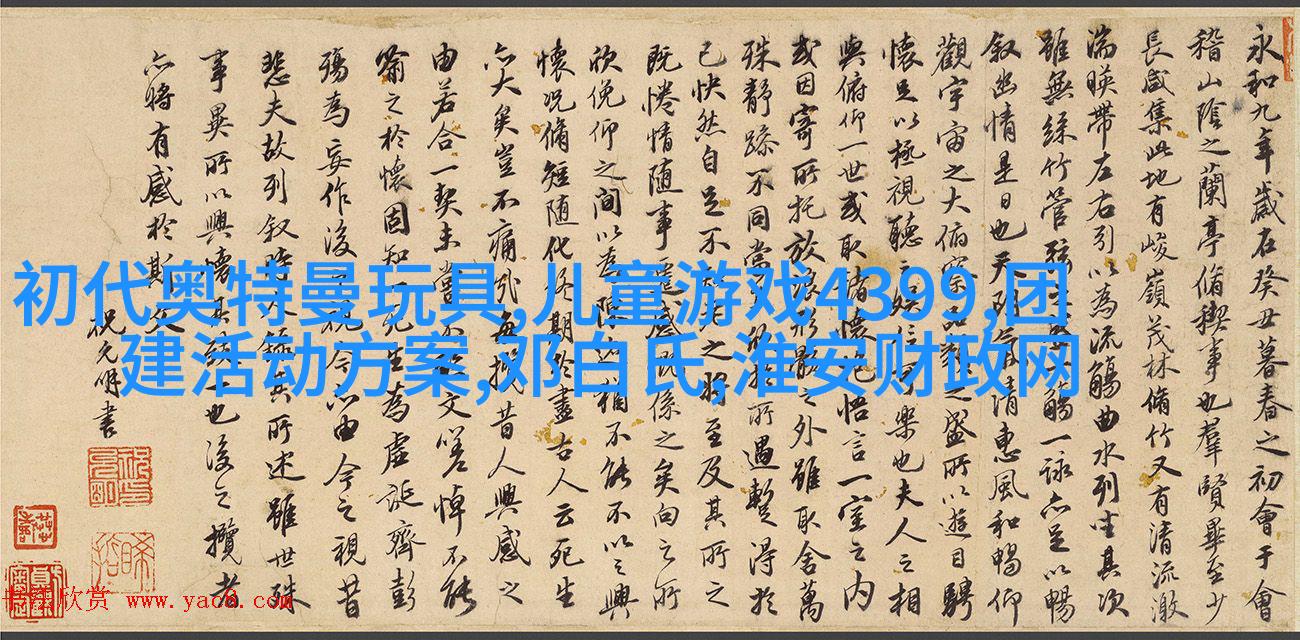 永和九年歲在癸丑暮春之初會于會
稽山陰之蘭亭脩稧事也羣賢畢至少
長咸集此地有峻嶺茂林脩竹又有清流激
湍暎帶左右引以為流觴曲水列坐其次
雖無絲竹管弦觴一詠亦足以暢
叙幽情是日也天氣清惠風和暢仰
觀宇宙之大俯察品類之盛所以遊目騁
懷足以極視聽之娛信樂也夫人之相
與俯仰一世或取諸懷抱悟言一室之內
或因寄所托放浪形骸之外雖取舍萬
殊靜躁不同當所遇蹔得於
已快然自足不之將至及其所之
既惓情隨事遷感慨係之矣向之所
欣俛仰之間以為陳迹猶不能不以之興
懷況脩短隨化終期於盡古人云死生
亦大矣豈不痛哉每攬昔人興感之
由若合一契未嘗不文嗟悼不能
喻之於懷固知死生為虛誕齊彭
殤為妄作後視今亦由今之視昔
悲夫故列叙時錄其所述雖世殊
事異所以興懷其致也後之攬者
亦將有感於斯文
祝允明書
初代奥特曼玩具,儿童游戏4399,团
建活动方案,邓白氏,淮安财政网
书法欣赏 www.yac8.com